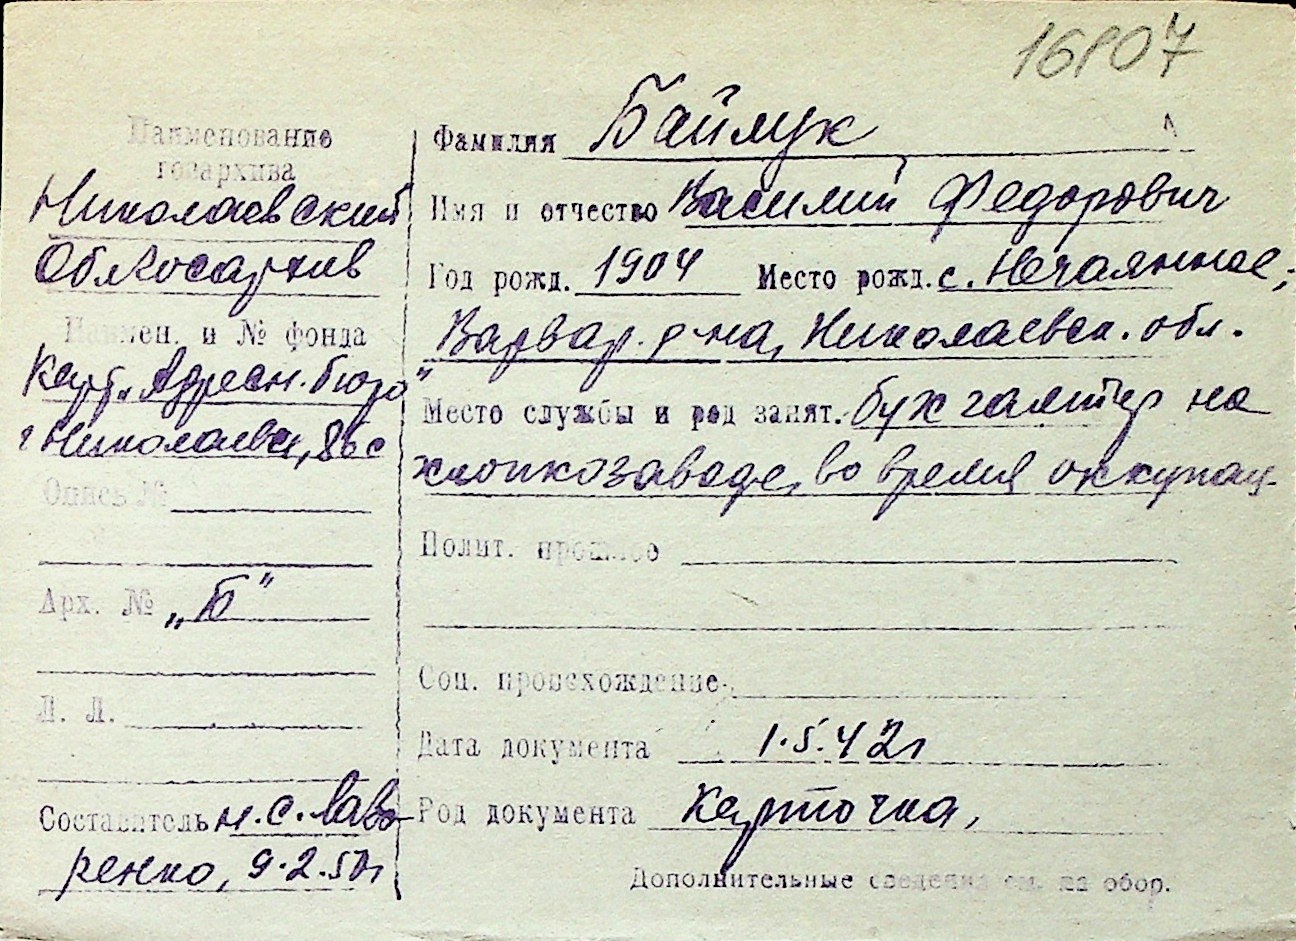 16807
Наименование
госархива
Николаевский
Облгосархив
Наимен. и № фонда
Карт. „Адресн. бюро"
г. Николаевск,
Опись №
Арх. № „Б"
Л. Л.
Составитель м.с. Лаво-
ренко, 9.2.50г
Фамилия Баймук
Имя и отчество Василий Федорович
Год рожд. 1904 Место рожд. с. Нечаянное,
Варвар. р-на, Николаевск. обл.
Место службы и род занят. бухгалтер на
хлопкозаводе, во время оккупац.
Полит. прошлое
Соц. происхождение
Дата документа 1.5.42г
Род документа Карточка,
Дополнительные сведения см. на обор.